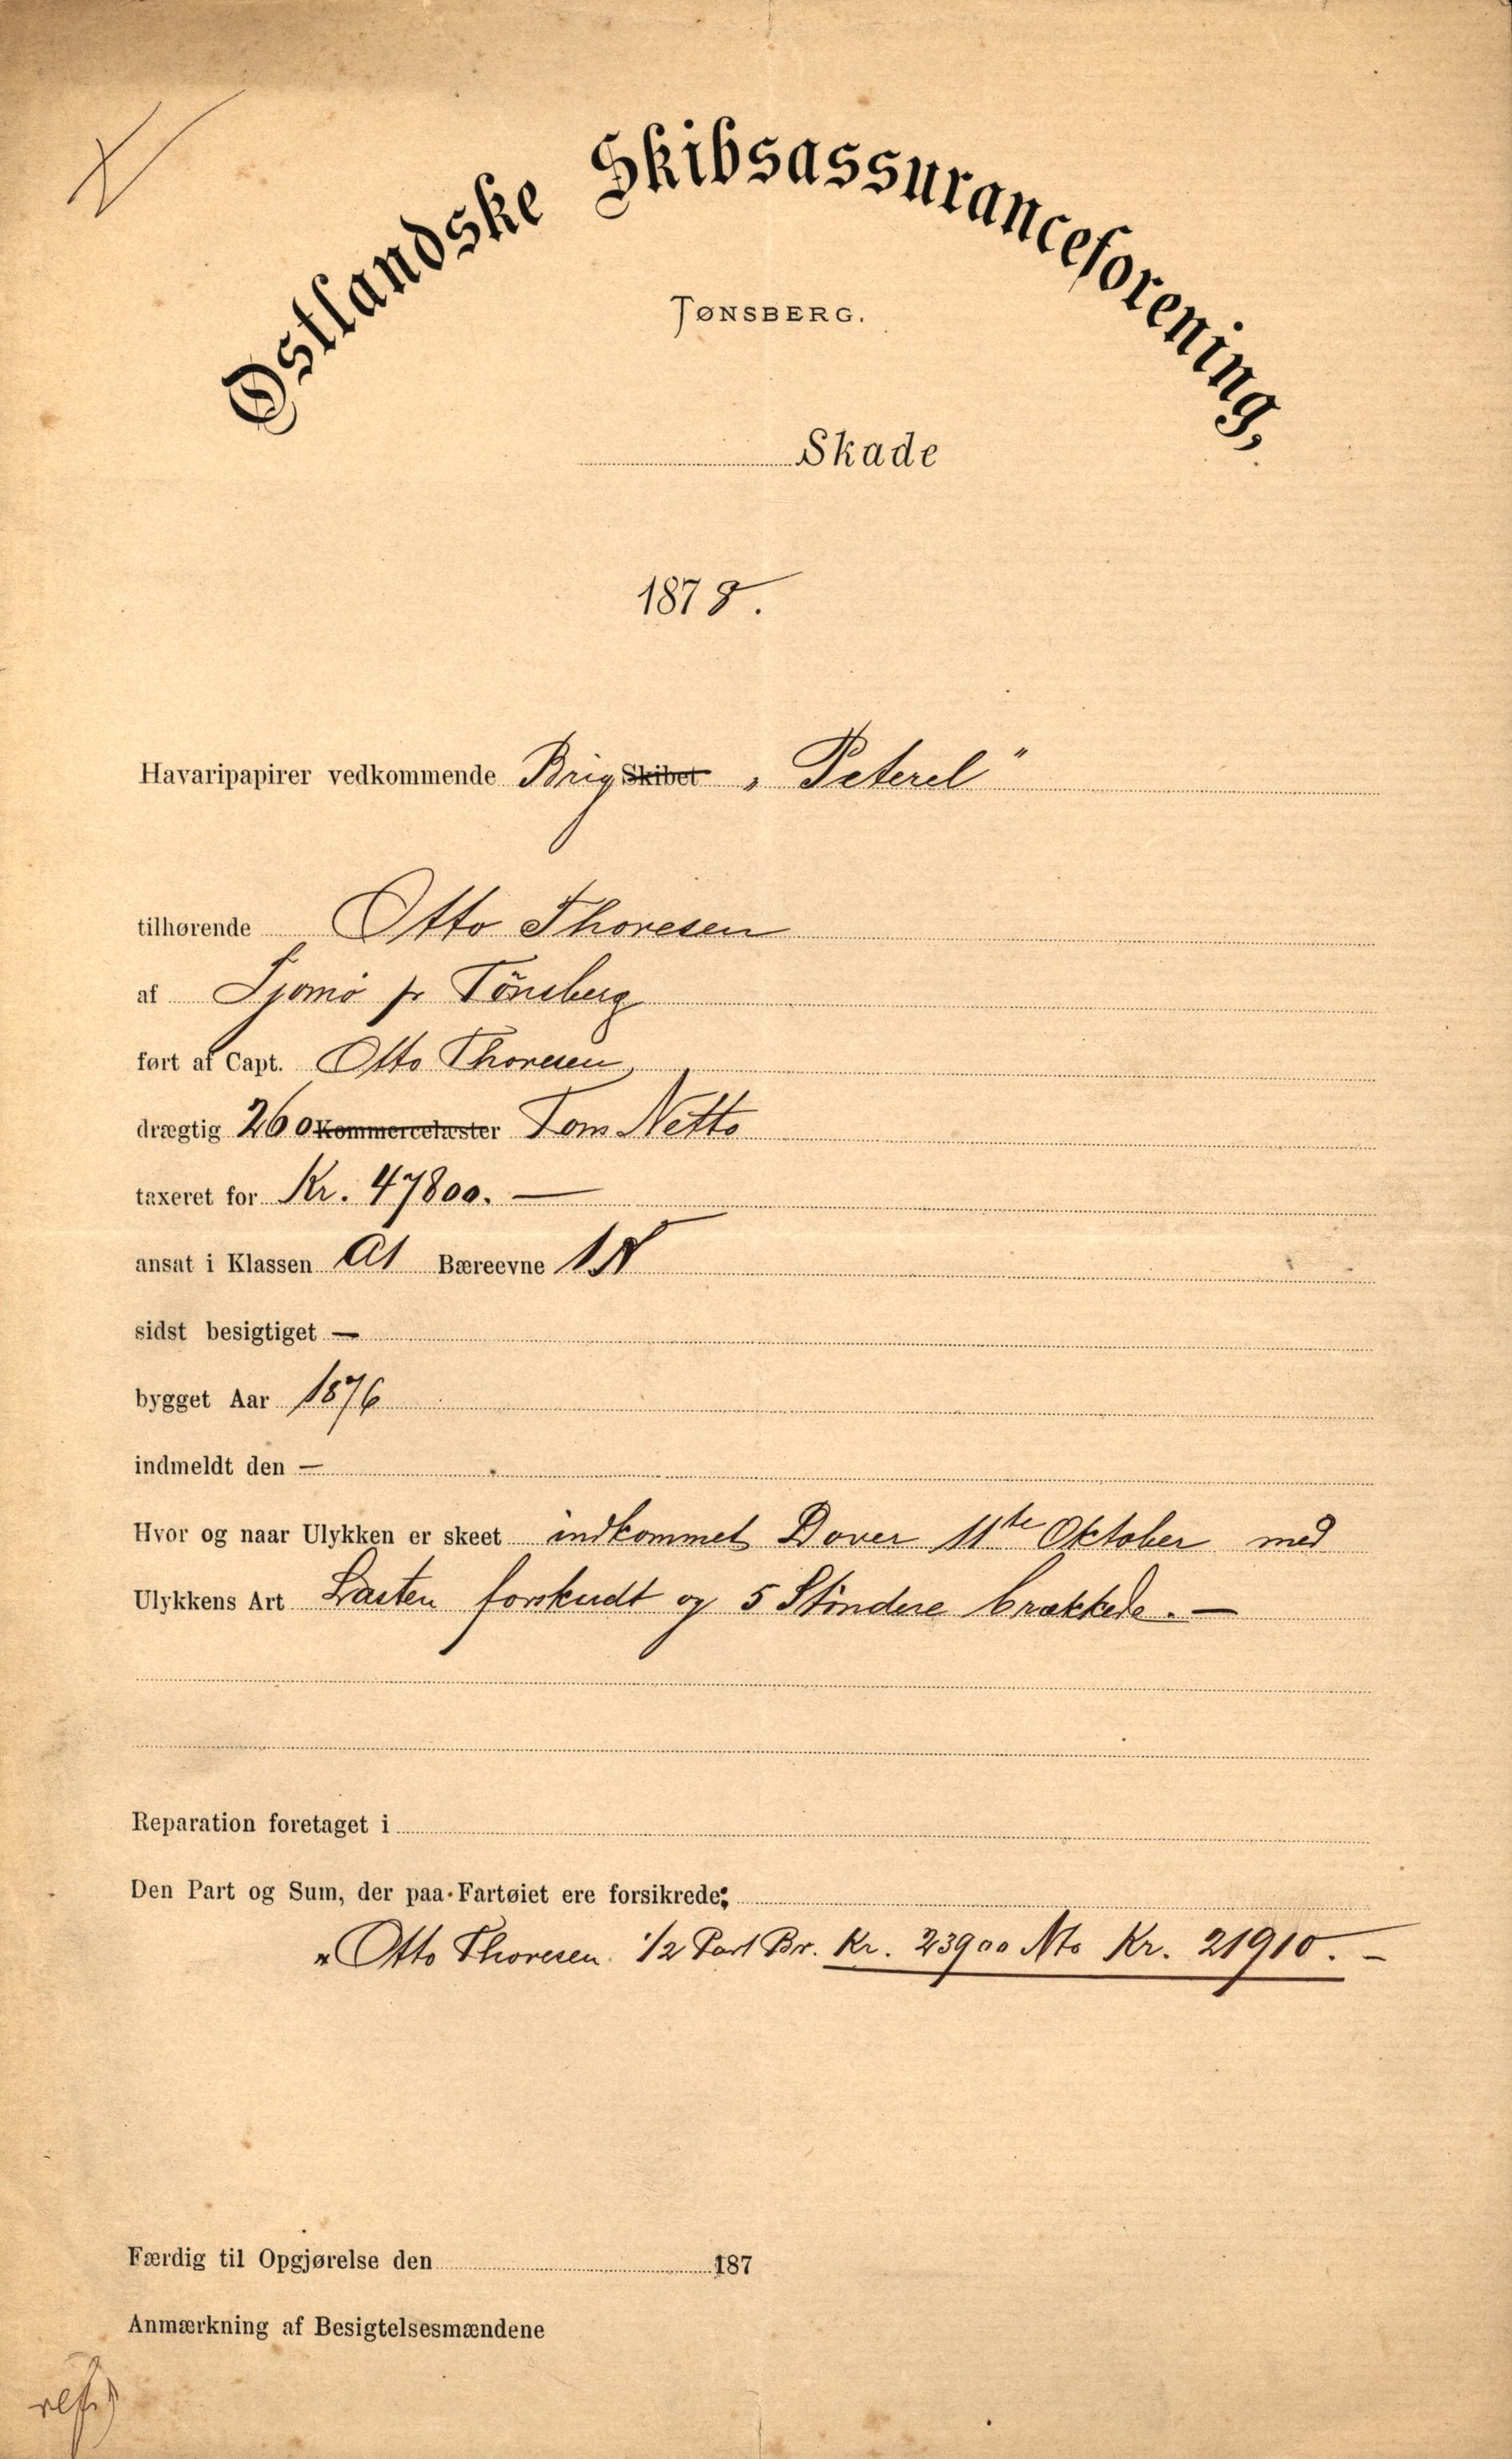 Østlandske Skibsassuranceforening,
TØNSBERG.
Skade
1878.
Havaripapirer vedkommende Brig Skibet „Peterel"
tilhørende Otto Thoresen
af Tjømø pr Tönsberg
ført af Capt. Otto Thoresen
drægtig 260 Kommercelæster Tons Netto
taxeret for Kr. 47800. —
ansat i Klassen A1 Bæreevne
sidst besigtiget —
bygget Aar 1876
indmeldt den —
Hvor og naar Ulykken er skeet indkommet Dover 11te Oktober med
Ulykkens Art Lasten forskudt og 5 Støndere brækkede. —
Reparation foretaget i
Den Part og Sum, der paa Fartøiet ere forsikrede:
Otto Thoresen 1/2 Part Br. Kr. 23900 Nto Kr. 21910. –
Færdig til Opgjørelse den 187
Anmærkning af Besigtelsesmændene